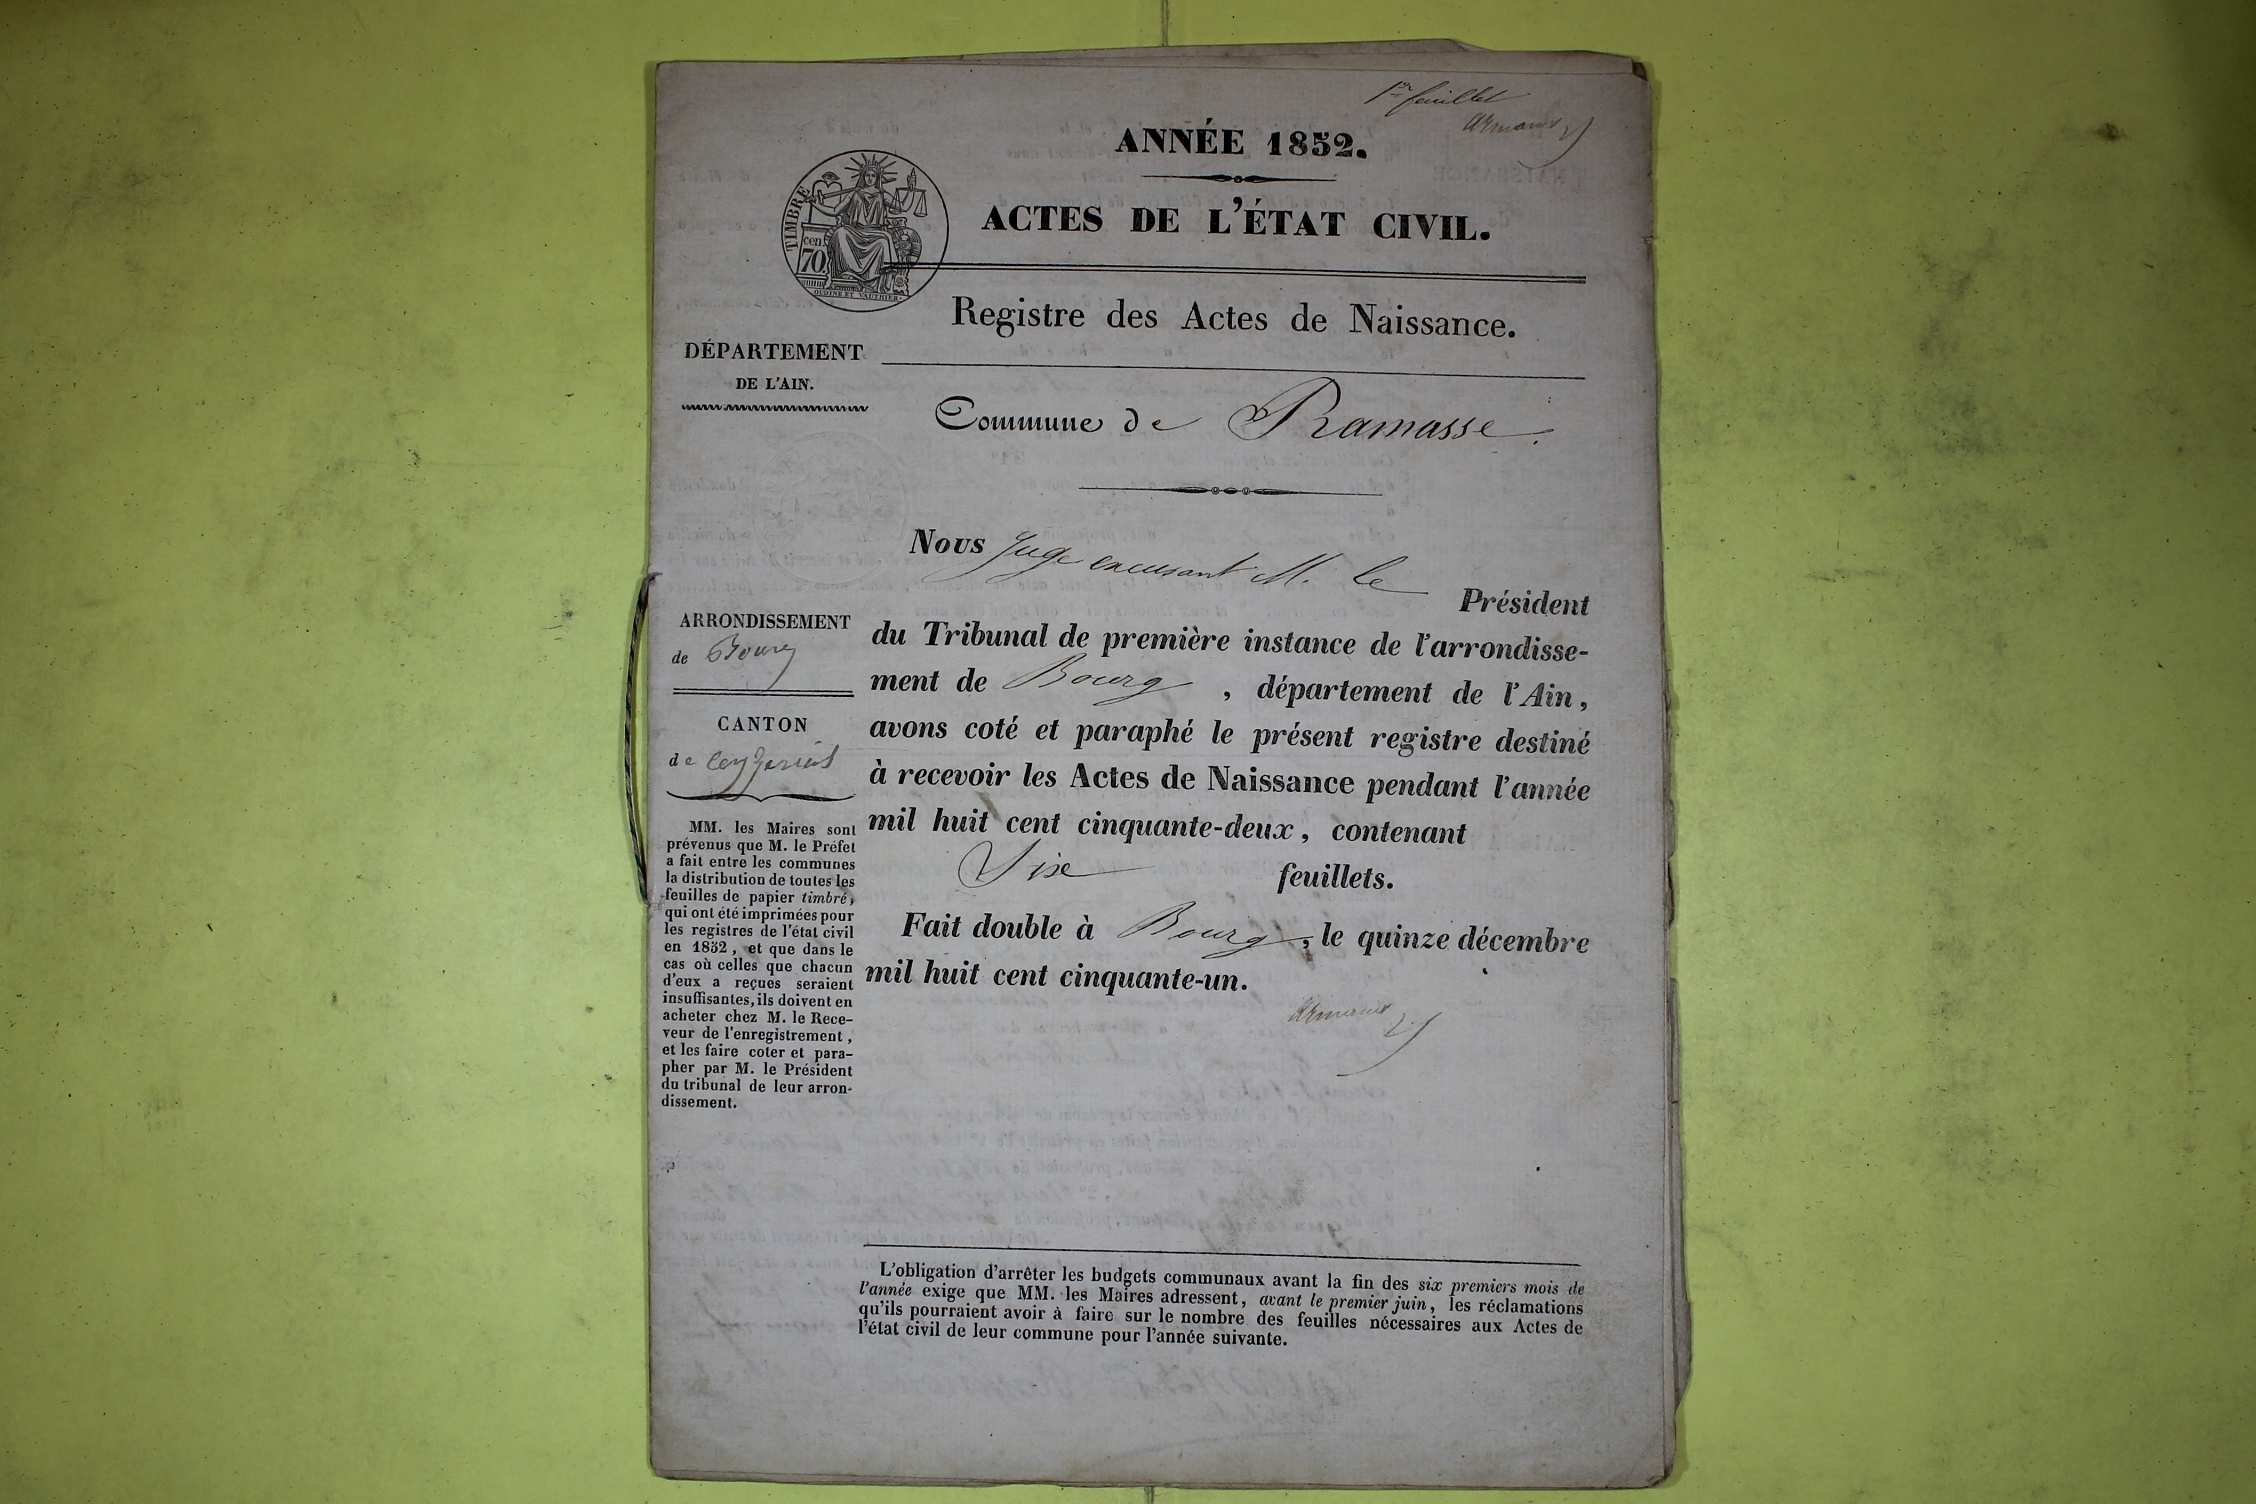 1er feuillet
Armand
ANNÉE 1852.
ACTES DE L'ÉTAT CIVIL.
TIMBRE
cen.
70
OUDINÉ ET VAUTHIER.
Registre des Actes de Naissance.
DÉPARTEMENT
DE L'AIN.
Commune de Ramasse.
Nous Juge excusant M. le
Président
du Tribunal de première instance de l'arrondisse-
ment de Bourg, département de l'Ain,
avons coté et paraphé le présent registre destiné
à recevoir les Actes de Naissance pendant l'année
mil huit cent cinquante-deux, contenant
Six feuillets.
Fait double à Bourg, le quinze décembre
mil huit cent cinquante-un.
Armand
ARRONDISSEMENT
de Bourg
CANTON
de Ceyzeriat
MM. les Maires sont
prévenus que M. le Préfet
a fait entre les communes
la distribution de toutes les
feuilles de papier timbré,
qui ont été imprimées pour
les registres de l'état civil
en 1852, et que dans le
cas où celles que chacun
d'eux a reçues seraient
insuffisantes, ils doivent en
acheter chez M. le Rece-
veur de l'enregistrement,
et les faire coter et para-
pher par M. le Président
du tribunal de leur arron-
dissement.
L'obligation d'arrêter les budgets communaux avant la fin des six premiers mois de
l'année exige que MM. les Maires adressent, avant le premier juin, les réclamations
qu'ils pourraient avoir à faire sur le nombre des feuilles nécessaires aux Actes de
l'état civil de leur commune pour l'année suivante.